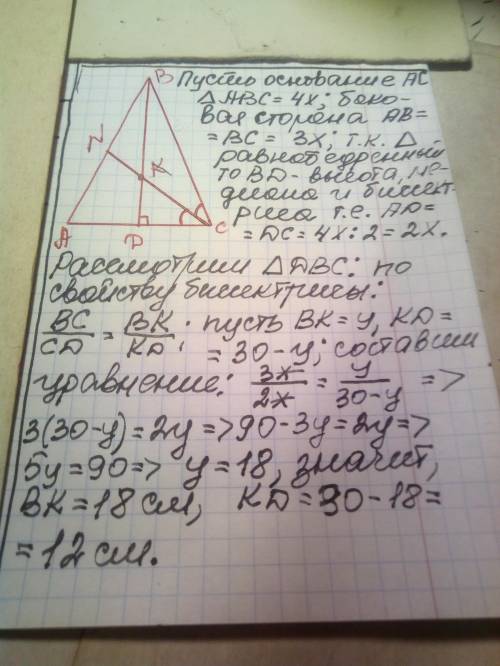 B
N
K
A
D
C
Пусть основание AC
△ABC = 4x; боко-
вая сторона AB=
=BC = 3x; т.к. △
равнобедренный
то BD - высота, ме-
диана и биссект-
риса т.е. AD=
=DC=4x:2=2x.
Рассмотрим △DBC: по
свойству биссектрисы:
BC/CD = BK/KD. пусть BK=y, KD=
=30-y; составим
уравнение: 3x/2x = y/30-y =>
3(30-y)=2y=>90-3y=2y=>
5y=90=> y=18, значит,
BK=18 см, KD=30-18=
=12 см.